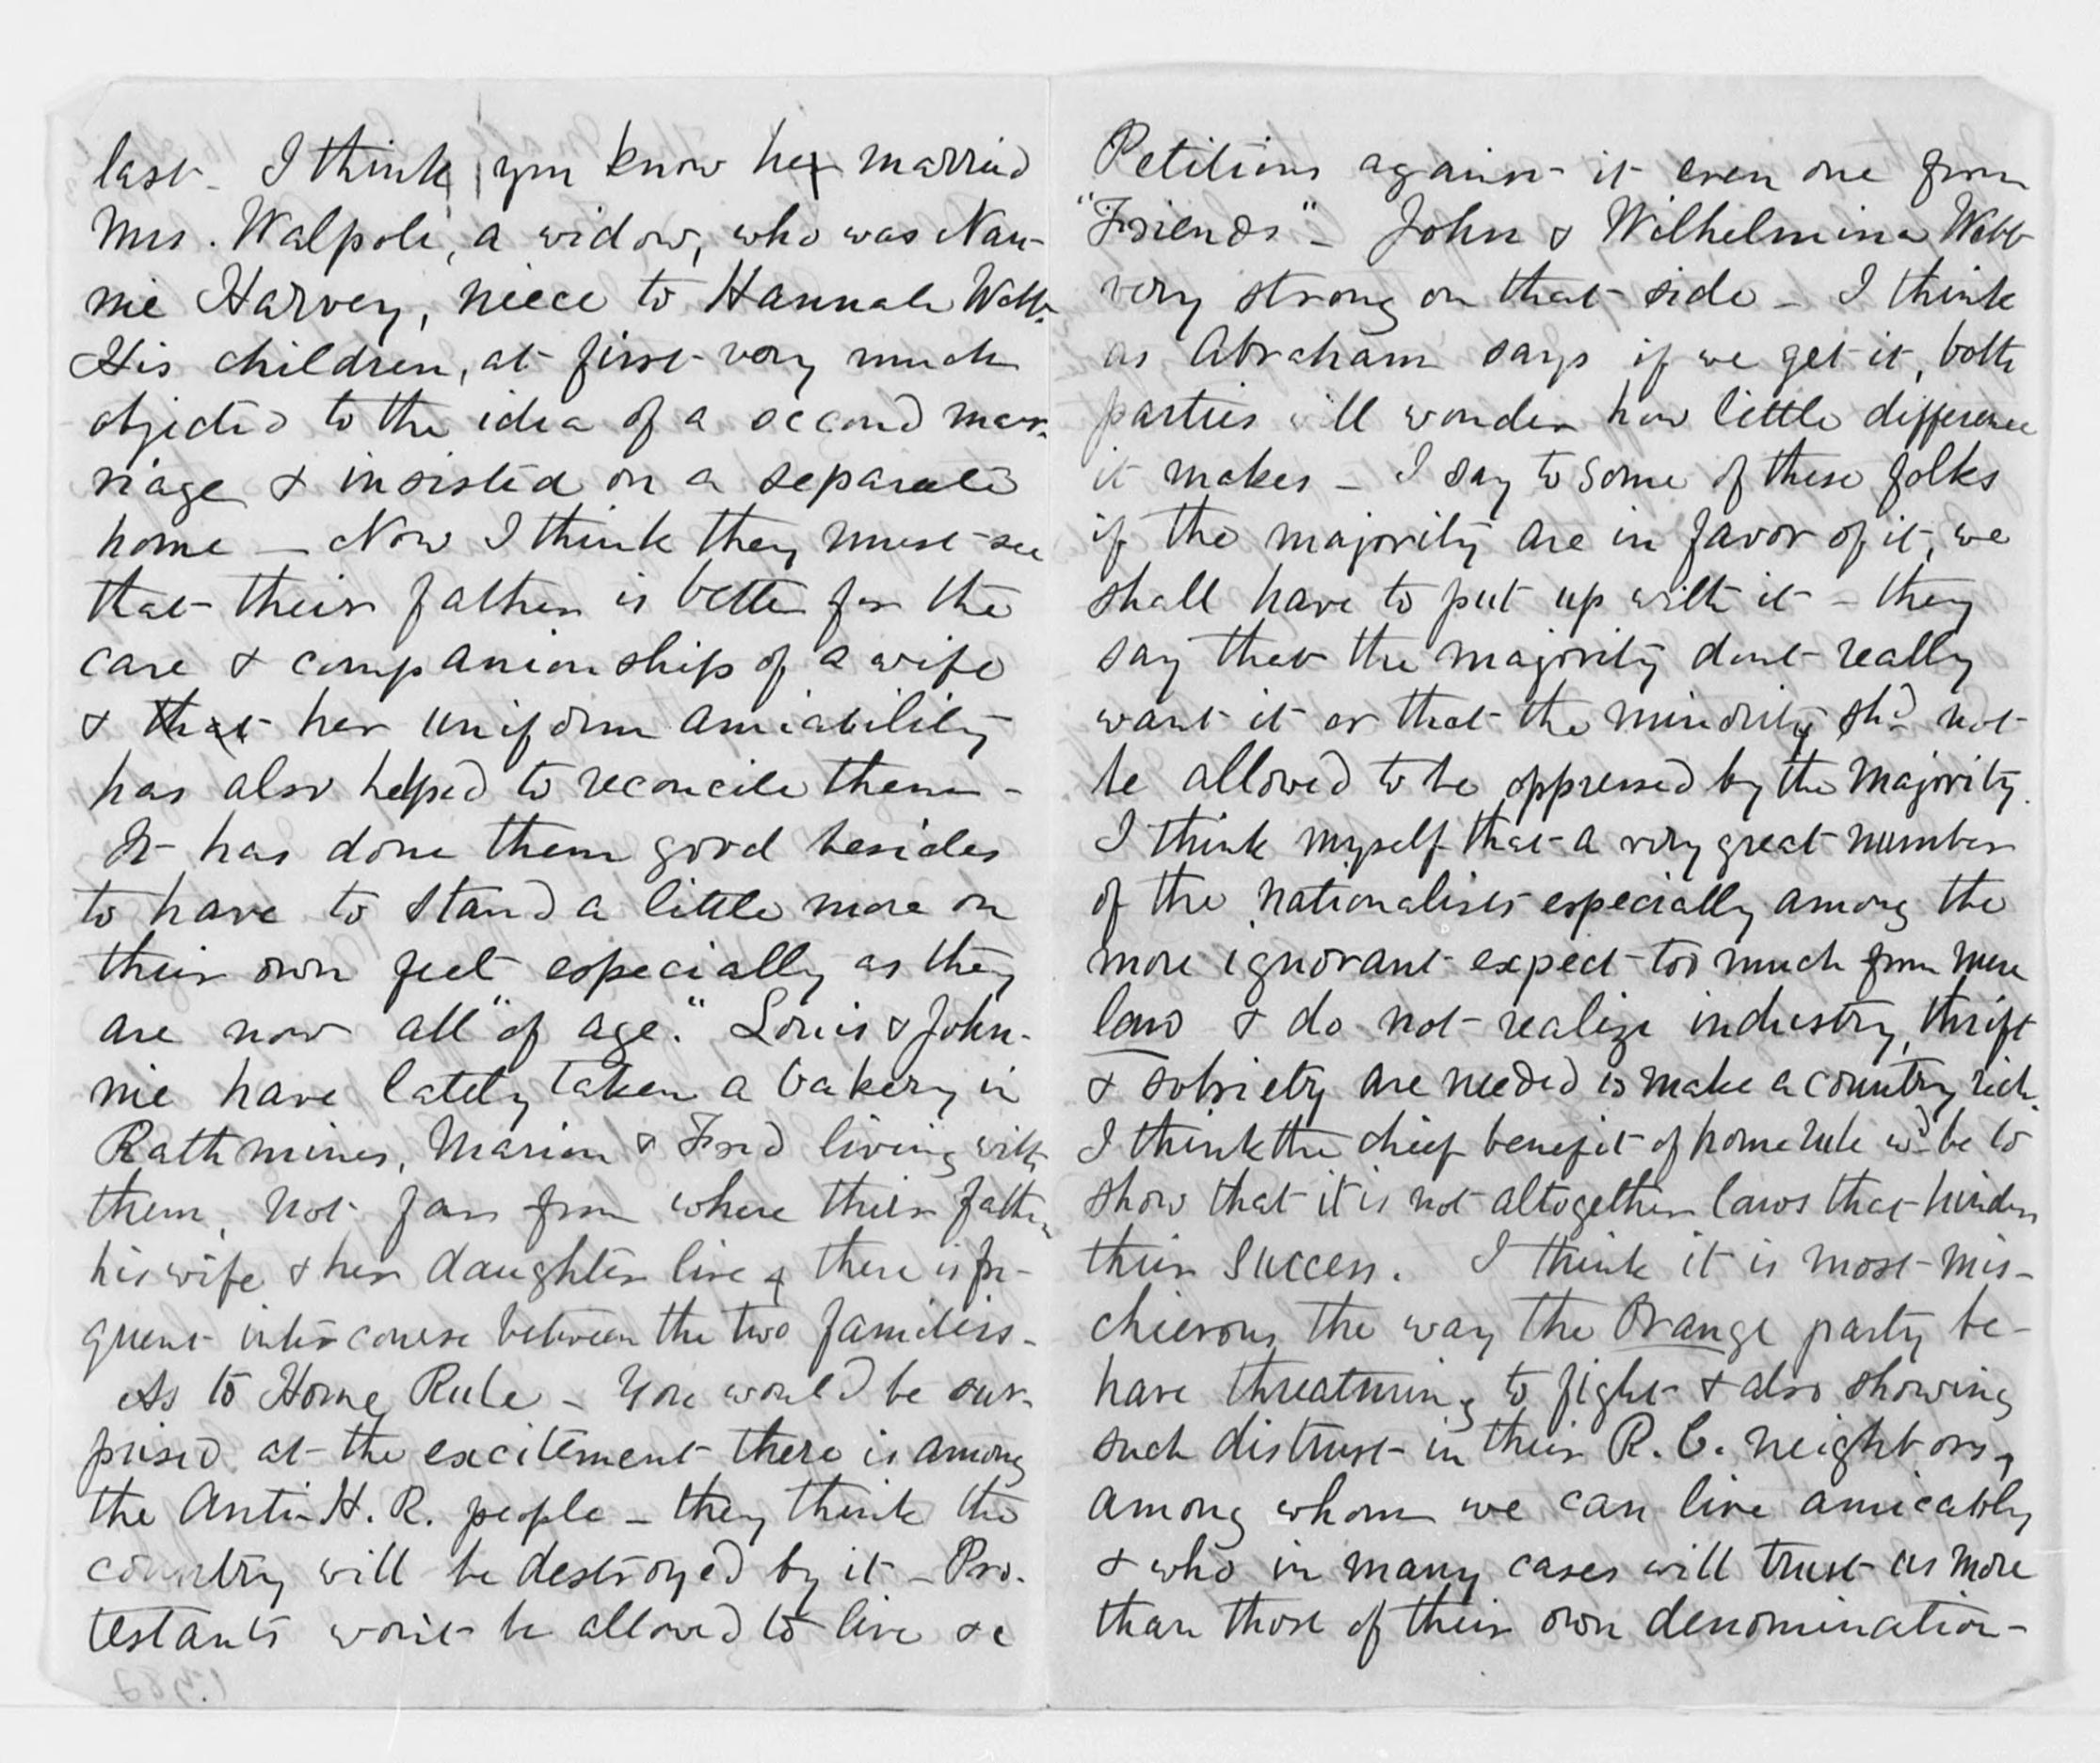 last - I think you know he married
Mrs. Walpole, a widow, who was Nan-
nie Harvey, niece to Hannah Webb.
His children, at first very much
objected to the idea of a second mar-
riage & insisted on a separate
home - Now I think they must see
that their father is better for the
care & companionship of a wife
& that her uniform amiability
has also helped to reconcile them -
It has done them good besides
to have to stand a little more on
their own feet especially as they
are now all "of age." Louis & John-
nie have lately taken a bakery in
Rathmines, Marion & Fred living with
them, not far from where their father
his wife & her daughter live & there is fre-
quent intercourse between the two families -
As to Home Rule - You would be sur-
prised at the excitement there is among
the Anti H. R. people - they think the
country will be destroyed by it - Pro-
testants won't be allowed to live &c
Petitions against it even one from
"Friends" - John & Wilhelmina Webb
very strong on that side - I think
as Abraham says if we get it, both
parties will wonder how little difference
it makes - I say to some of these folks
if the majority are in favor of it, we
shall have to put up with it - they
say that the majority dont really
want it or that the minority shd not
be allowed to be oppressed by the majority.
I think myself that a very great number
of the nationalists especially among the
more ignorant expect too much from mere
law & do not realize industry, thrift
& sobriety are needed to make a country rich.
I think the chief benefit of home rule wd be to
show that it is not altogether laws that hinder
their success. I think it is most mis-
chievous the way the Orange party be-
have threatening to fight & also showing
such distrust in their R. C. neighbors,
among whom we can live amicably
& who in many cases will trust us more
than those of their own denomination -